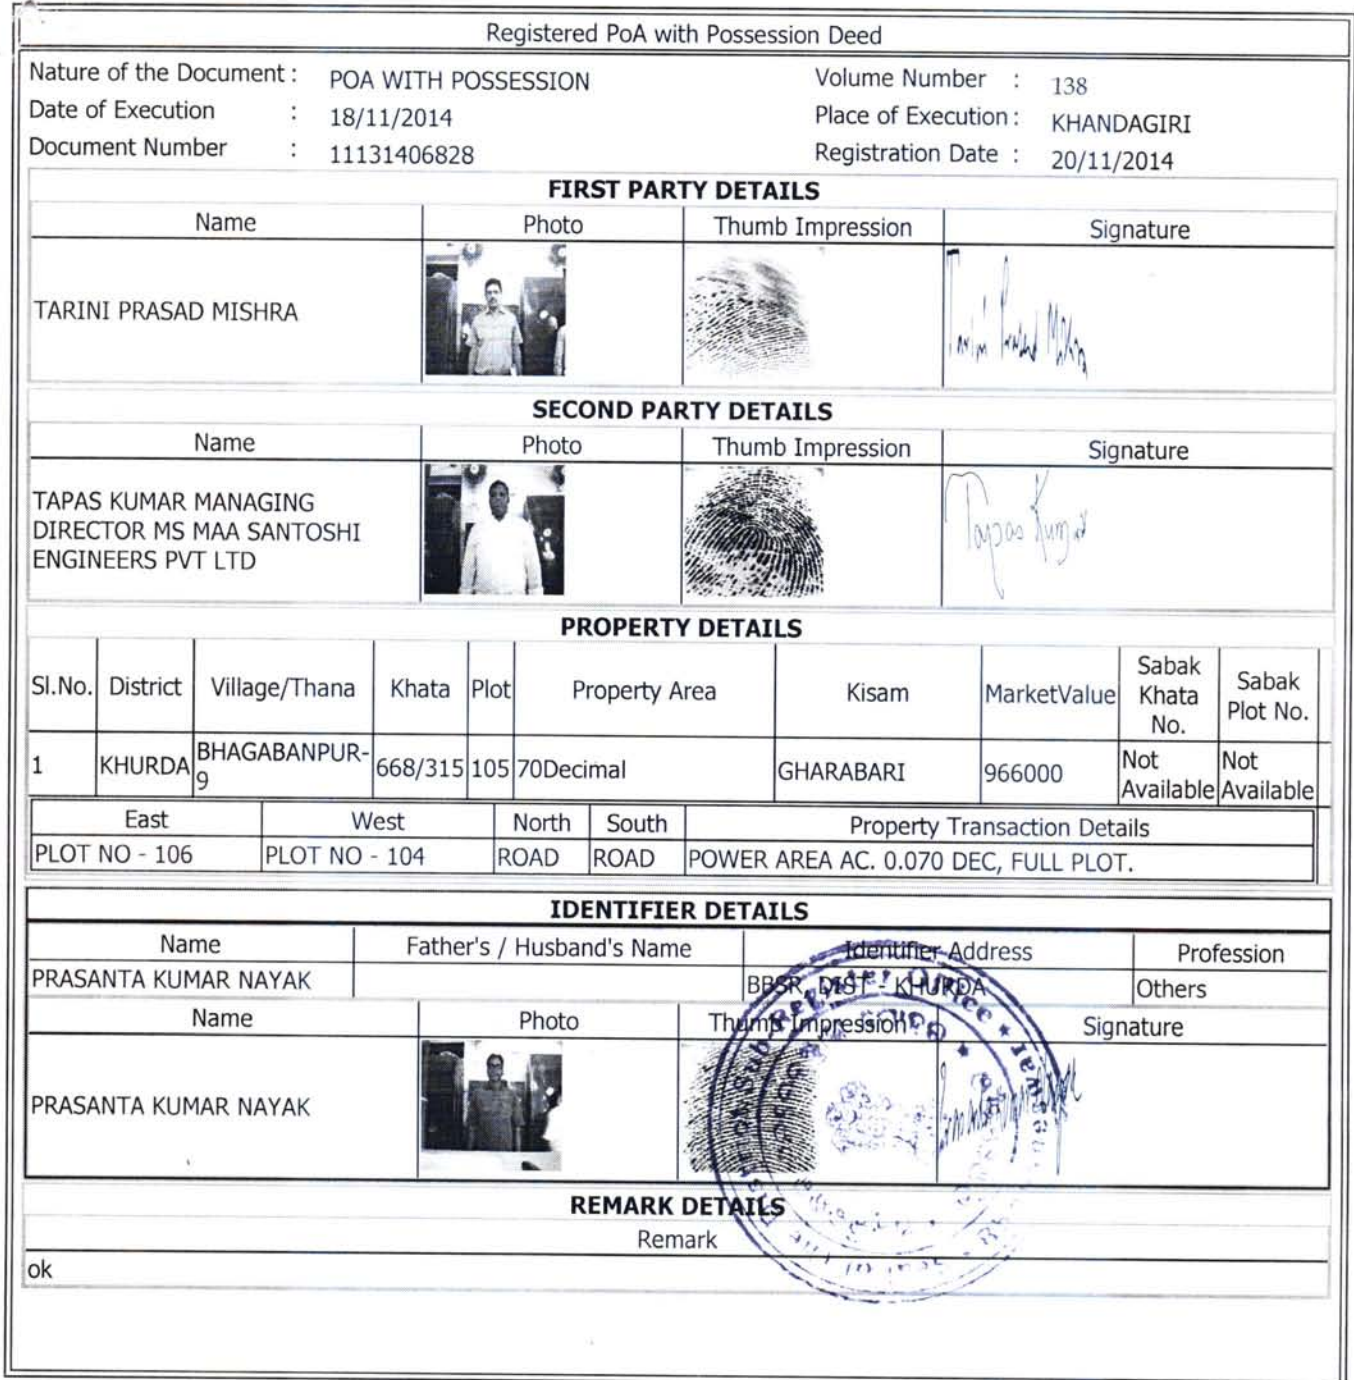 Registered PoA with Possession Deed
Nature of the Document : POA WITH POSSESSION Volume Number : 138
Date of Execution : 18/11/2014 Place of Execution : KHANDAGIRI
Document Number : 11131406828 Registration Date : 20/11/2014
FIRST PARTY DETAILS
Name Photo Thumb Impression Signature
TARINI PRASAD MISHRA
SECOND PARTY DETAILS
Name Photo Thumb Impression Signature
TAPAS KUMAR MANAGING
DIRECTOR MS MAA SANTOSHI
ENGINEERS PVT LTD
Tapas Kumar
PROPERTY DETAILS
Sl.No. District Village/Thana Khata Plot Property Area Kisam MarketValue Sabak Khata No. Sabak Plot No.
1 KHURDA BHAGABANPUR-9 668/315 105 70Decimal GHARABARI 966000 Not Available Not Available
East West North South Property Transaction Details
PLOT NO - 106 PLOT NO - 104 ROAD ROAD POWER AREA AC. 0.070 DEC, FULL PLOT.
IDENTIFIER DETAILS
Name Father's / Husband's Name Identifier Address Profession
PRASANTA KUMAR NAYAK BBSR, DIST - KHURDA Others
Name Photo Thumb Impression Signature
PRASANTA KUMAR NAYAK
REMARK DETAILS
Remark
ok